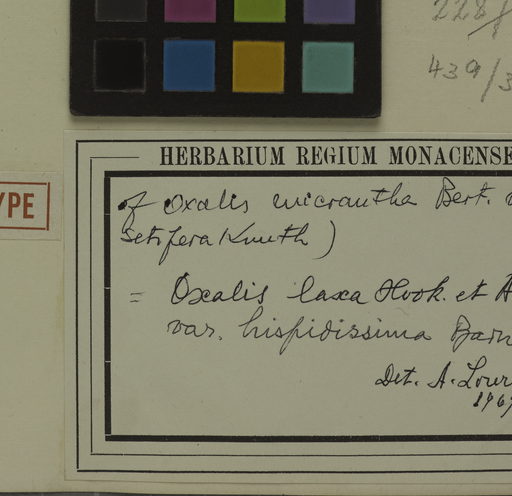 228/
439/3
YPE
HERBARIUM REGIUM MONACENSE
of Oxalis micrantha Bert. v
setifera Knuth)
= Oxalis laxa Hook. et A
var. hispidissima Barn
Det. A. Lour
1969